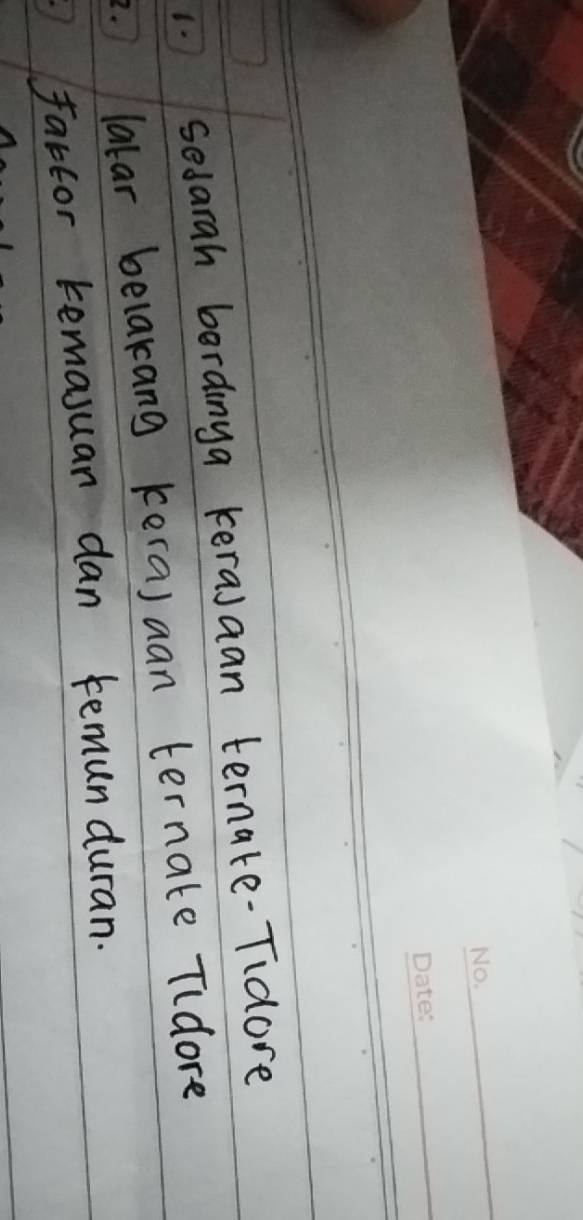 No.
Date:
1. Sejarah berdinya kerajaan ternate-Tidore
2. latar belakang kerajaan ternate Tidore
faktor kemajuan dan kemunduran.